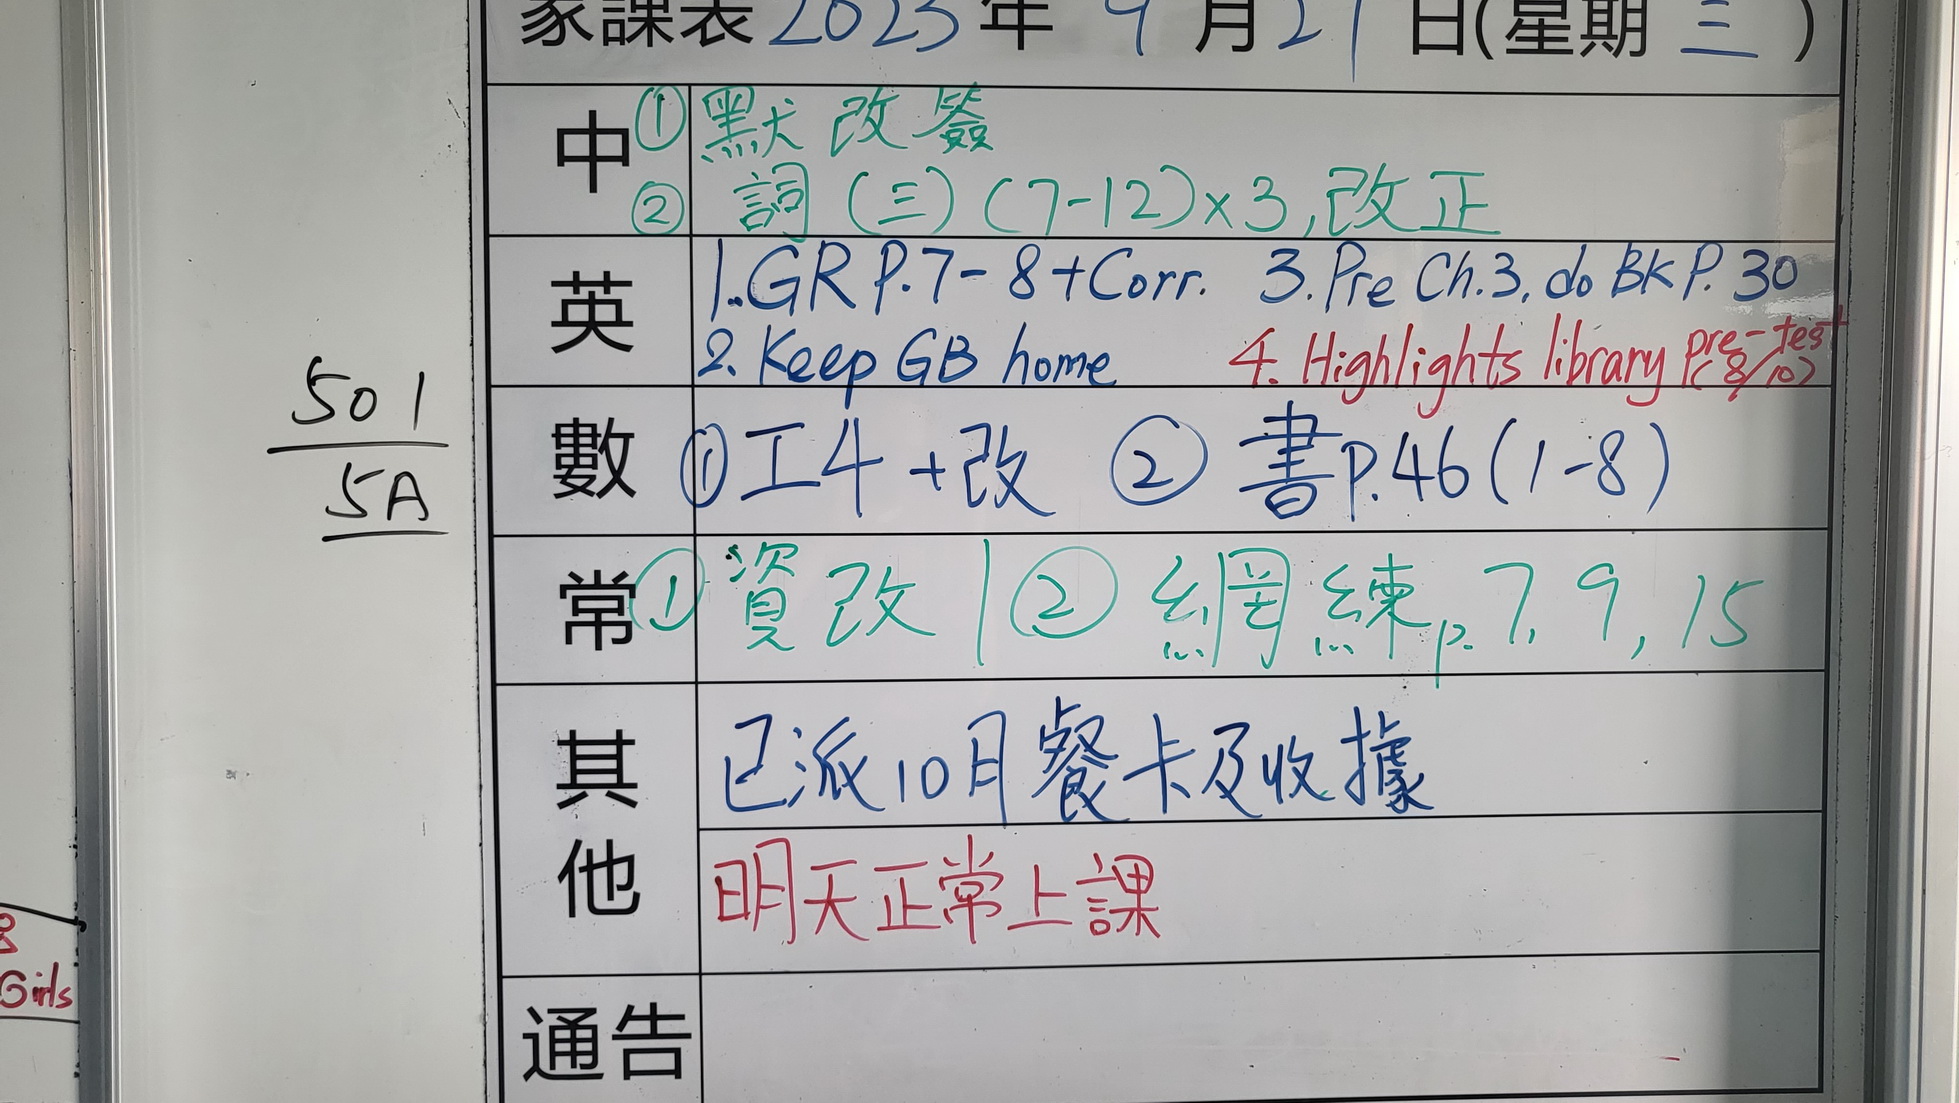 家課表 2023 年 9 月 27 日(星期 三 )
中 ① 默改簽
② 詞(三)(7-12)×3,改正
英 1. GR P.7-8+Corr. 3. Pre Ch.3, do BK P.30
2. Keep GB home 4. Highlights library pre-test (8/10)
數 ① 工4+改 ② 書p.46(1-8)
常 ① 資改 | ② 網練p.7, 9, 15
其他 已派10月餐卡及收據
明天正常上課
通告
501
5A
Girls